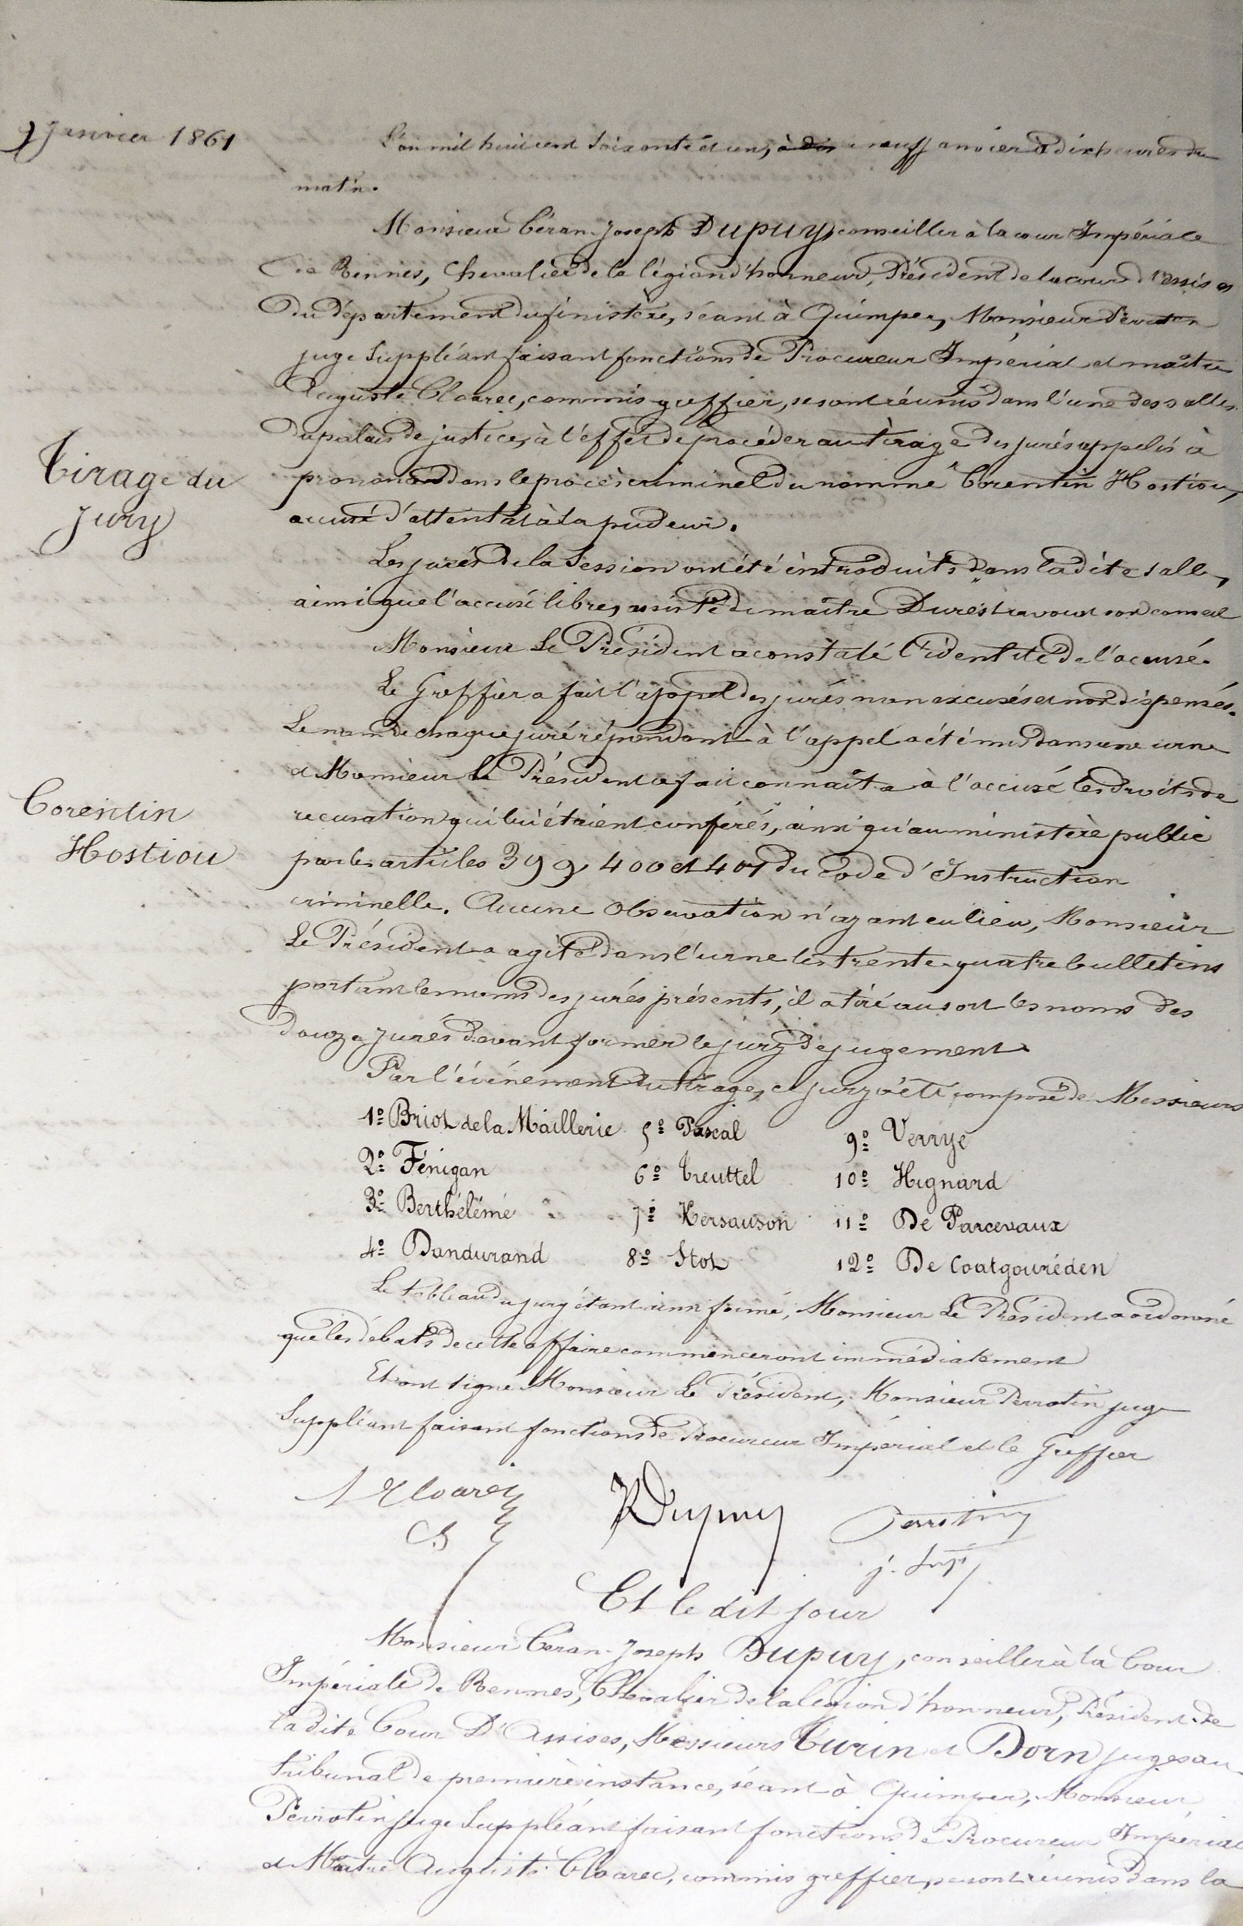 9 janvier 1861
L'an mil huit cent soixante et un, à dix neuf janvier à dix heures du
matin.
Monsieur Céran-Joseph Dupuy, conseiller à la cour Impériale
de Rennes, Chevalier de la légion d'honneur, Président de la cour d'assises
du département du finistère, séant à Quimper, Monsieur Perrotin
juge Suppléant faisant fonctions de Procureur Impérial et maître
Auguste Cloarec, commis-greffier, se sont réunis dans l'une des salles
du palais de justice, à l'effet de procéder au tirage des jurés appelés à
Tirage du
Jury
prononcer dans le procès criminel du nommé Corentin Hostiou,
accusé d'attentat à la pudeur.
Les jurés de la Session ont été introduits dans ladite salle,
ainsi que l'accusé libre, assisté de maître avocat son conseil
Monsieur Le Président a constaté l'identité de l'accusé.
Le Greffier a fait l'appel des jurés non excusés et non dispensés.
Le nom de chaque juré répondant à l'appel a été mis dans une urne
et Monsieur le Président a fait connaître à l'accusé les droits de
Corentin
Hostiou
recusation qui lui étaient conférés, ainsi qu'au ministère public
par les articles 399, 400 et 401 du Code d'Instruction
criminelle. Aucune Observation n'ayant eu lieu, Monsieur
Le Président a agité dans l'urne les trente-quatre bulletins
portant les noms des jurés présents, il a tiré au sort les noms des
douze jurés devant former le jury de jugement.
Par l'événement du tirage, ce jury a été composé de Messieurs
1º Briot de la Maillerie 5º Pascal 9º Verrye
2º Fénigan 6º Treuttel 10º Hignard
3º Berthélémé 7º Kersauson 11º De Parcevaux
4º Dandurand 8º Stot 12º De Coatgouréden
Le tableau du jury étant ainsi formé, Monsieur Le Président a ordonné
que les débats de cette affaire commenceront immédiatement
Et ont signé Monsieur Le Président, Monsieur Perrotin juge
Suppléant faisant fonctions de Procureur Impérial et le Greffier
A Cloarec Dupuy Perrotin
j. sup
Et le dit jour
Monsieur Céran-Joseph Dupuy, conseiller à la Cour
Impériale de Rennes, Chevalier de la légion d'honneur, Président de
ladite Cour D'Assises, Messieurs Turin et Dorn juges au
tribunal de première instance, séant à Quimper, Monsieur
Perrotin juge Suppléant faisant fonctions de Procureur Impérial
et Maître Auguste Cloarec, commis greffier, se sont réunis dans la